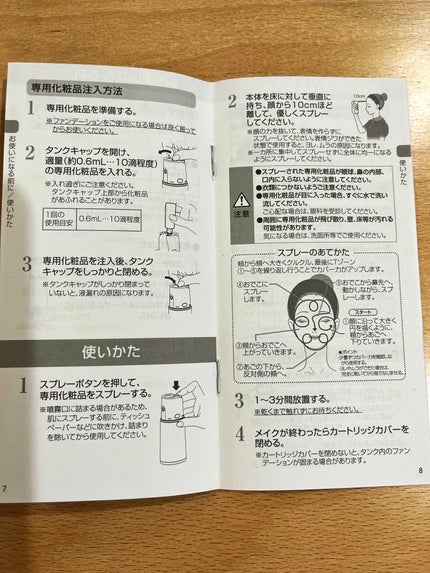 お使いになる前に/使いかた
専用化粧品注入方法
1 専用化粧品を準備する。
※ファンデーションをご使用になる場合は良く振って
からお使いください。
2 タンクキャップを開け、
適量(約0.6mL…10滴程度)
の専用化粧品を入れる。
※入れ過ぎにご注意ください。
タンクキャップ上部から化粧品
があふれることがあります。
1回の
使用目安
0.6mL…10滴程度
3 専用化粧品を注入後、タンク
キャップをしっかりと閉める。
※タンクキャップがしっかり閉まって
いないと、液漏れの原因になります。
使いかた
1 スプレーボタンを押して、
専用化粧品をスプレーする。
※噴霧口に詰まる場合があるため、
肌にスプレーする前に、ティッシュ
ペーパーなどに吹きかけ、詰まり
を除いてから使用してください。
7
2 本体を床に対して垂直に
持ち、顔から10cmほど
離して、優しくスプレー
してください。
10cm
※顔の力を抜いて、表情を作らずに
スプレーしてください。表情ジワができた
状態で使用すると、ヨレ、ムラの原因になります。
※一カ所に集中してスプレーせずに全体に均一になる
ようにスプレーしてください。
使いかた
注意
●スプレーされた専用化粧品が眼球、鼻の内部、
口内に入らないように注意してください。
●衣類につかないようご注意ください。
●専用化粧品が目に入った場合、すぐに水で洗い
流してください。
ご心配な場合は、眼科を受診してください。
●周囲に専用化粧品が飛び散り、壁、床等が汚れる
可能性があります。
気になる場合は、洗面所等でご使用ください。
スプレーのあてかた
頬から頬へ大きくクルクル、最後にTゾーン
①~⑤を繰り返し行うことでカバー力がアップします。
④おでこに
スプレー
します。
⑤おでこから鼻先へ
動かしながら、スプレー
します。
スタート
①顔に沿って大きく
円を描くように、
頬からあごへ
下りていきます。
③頬からおでこへ
上がっていきます。
②あごの下から、
反対側の頬へ。
●ポイント
3 1~3分間放置する。
※乾くまで触れずにお待ちください。
4 メイクが終わったらカートリッジカバーを
閉める。
※カートリッジカバーを閉めないと、タンク内のファン
デーションが固まる場合があります。
8